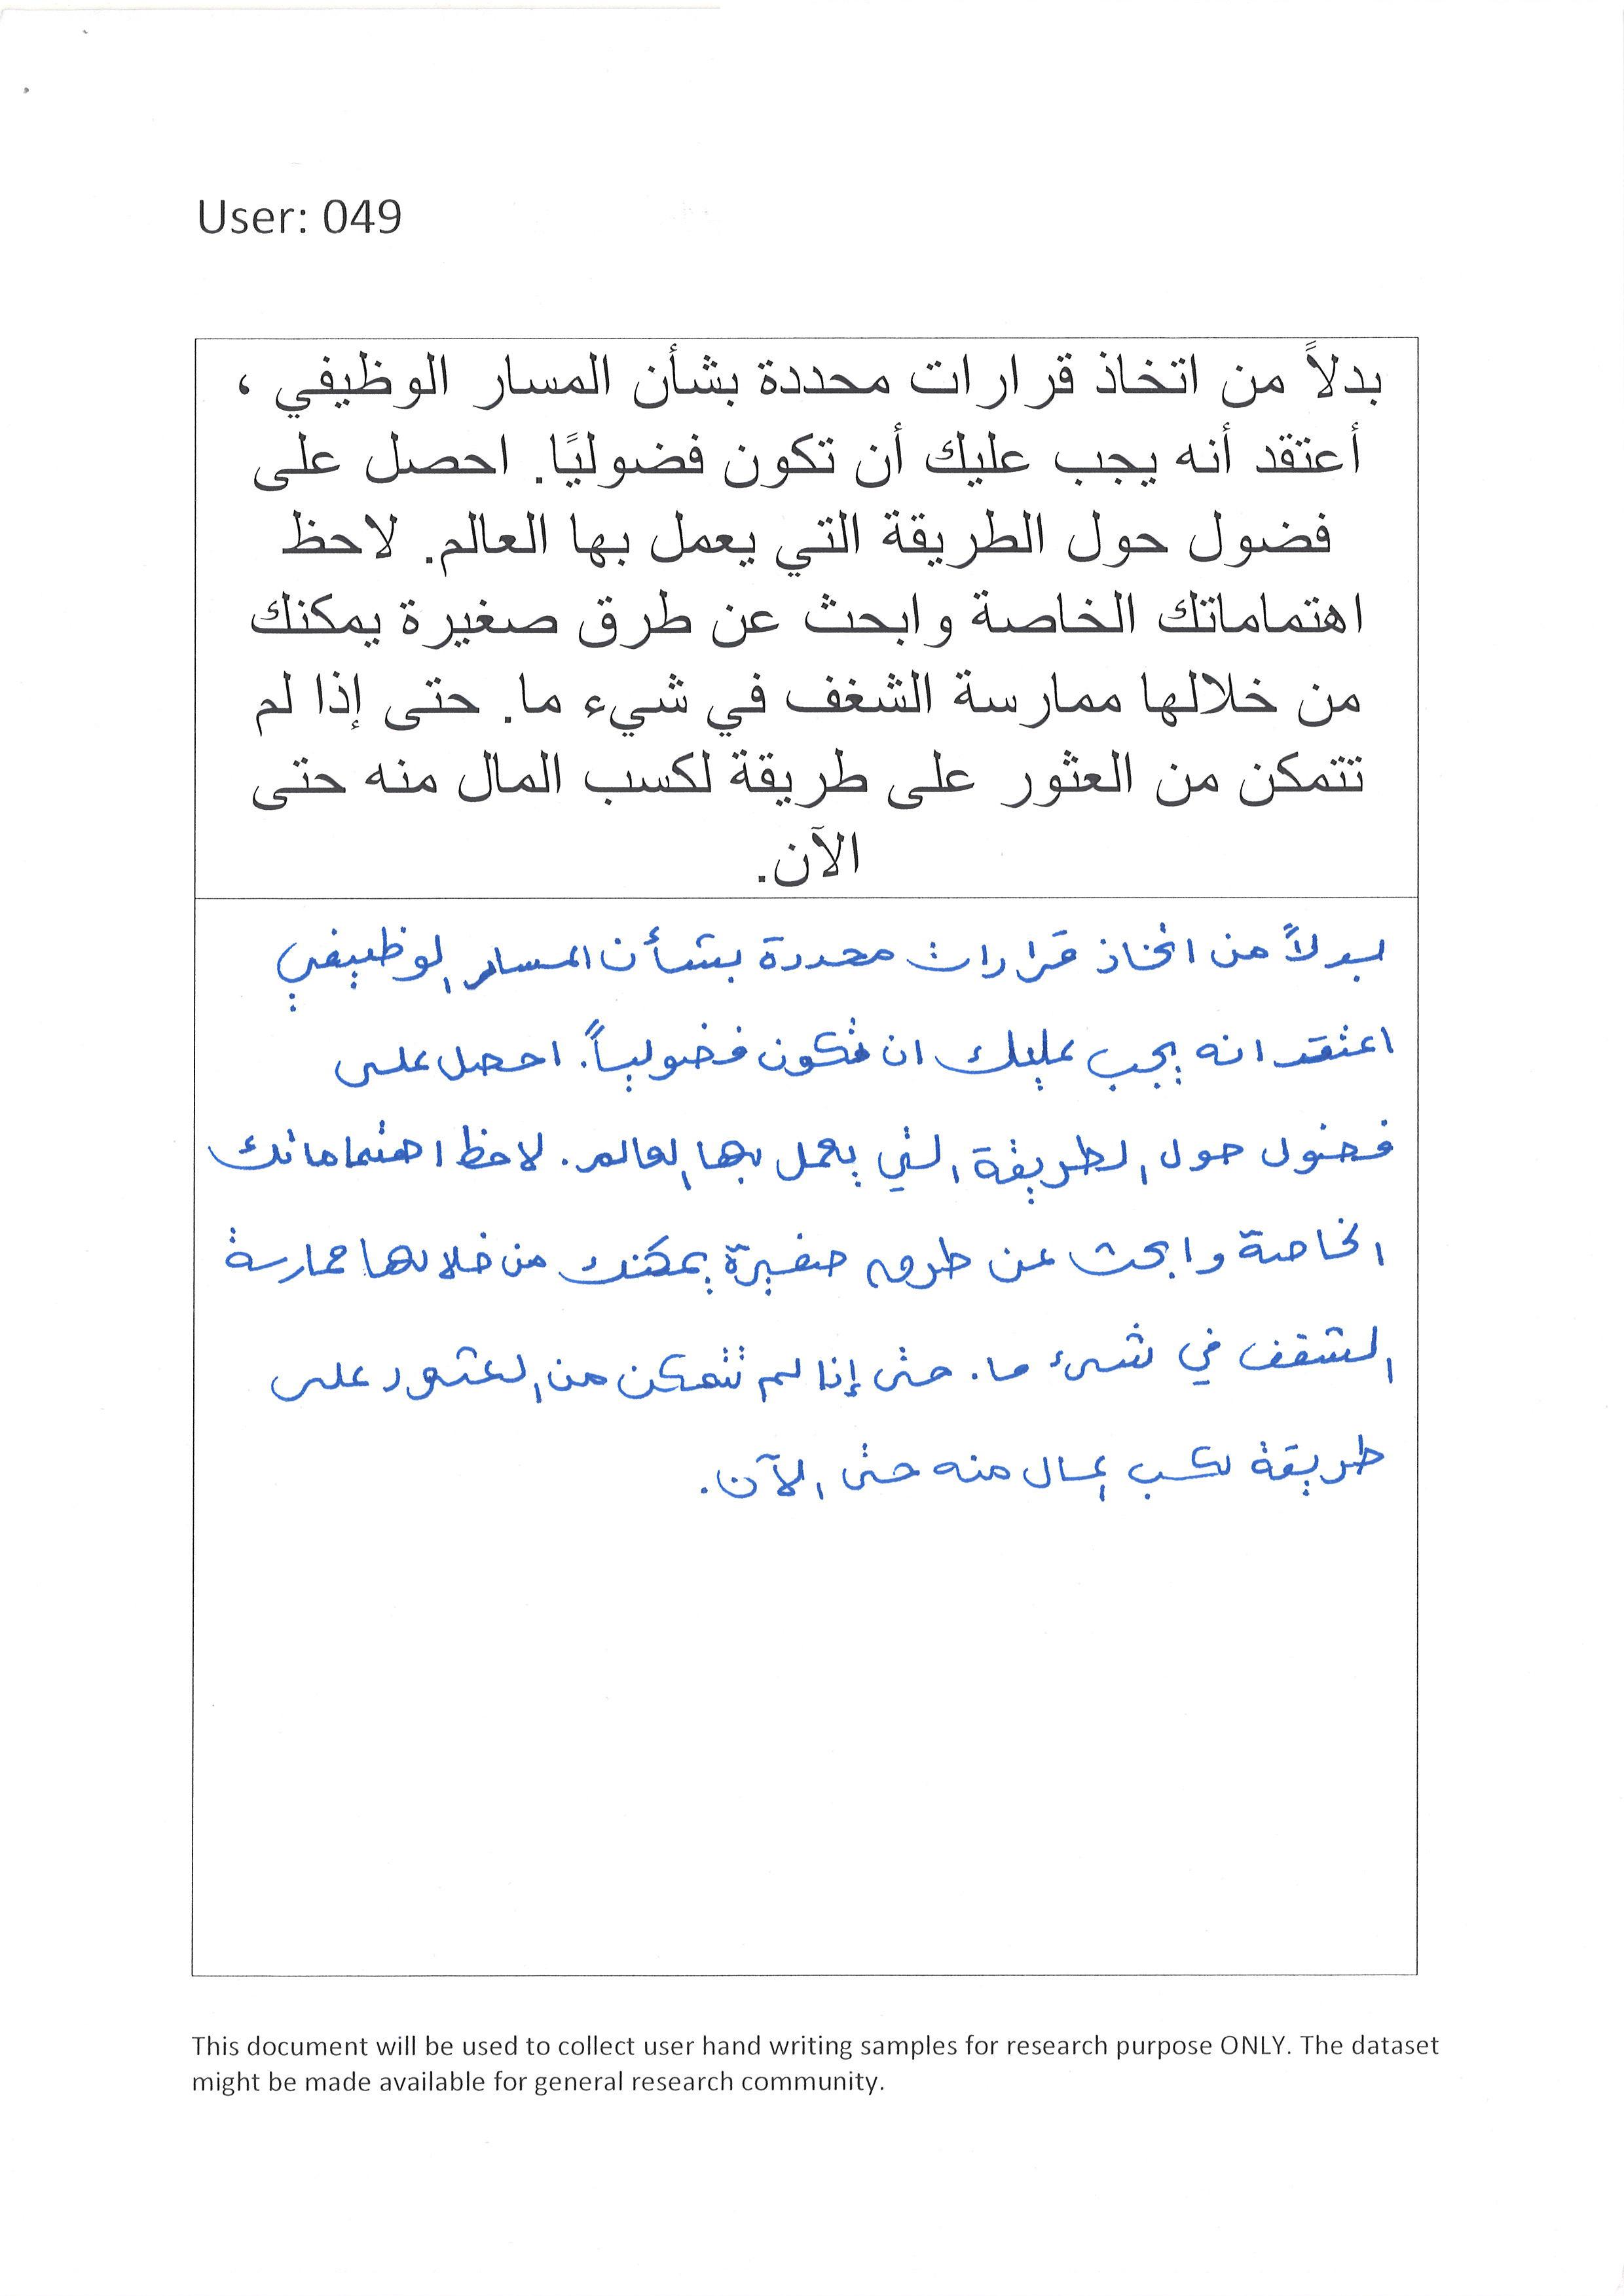 User: 049
بدلاً من اتخاذ قرارات محددة بشأن المسار الوظيفي ،
أعتقد أنه يجب عليك أن تكون فضوليًا. احصل على
فضول حول الطريقة التي يعمل بها العالم. لاحظ
اهتماماتك الخاصة وابحث عن طرق صغيرة يمكنك
من خلالها ممارسة الشغف في شيء ما. حتى إذا لم
تتمكن من العثور على طريقة لكسب المال منه حتى
الآن.
بدلاً من اتخاذ قرارات محددة بشأن المسار الوظيفي
اعتقد انه يجب عليك ان تكون فضولياً. احصل على
فضول حول الطريقة التي يعمل بها العالم. لاحظ اهتماماتك
الخاصة وابحث عن طرق صغيرة يمكنك من خلالها ممارسة
الشغف في شيء ما. حتى إذا لم تتمكن من العثور على
طريقة لكسب المال منه حتى الآن.
This document will be used to collect user hand writing samples for research purpose ONLY. The dataset
might be made available for general research community.